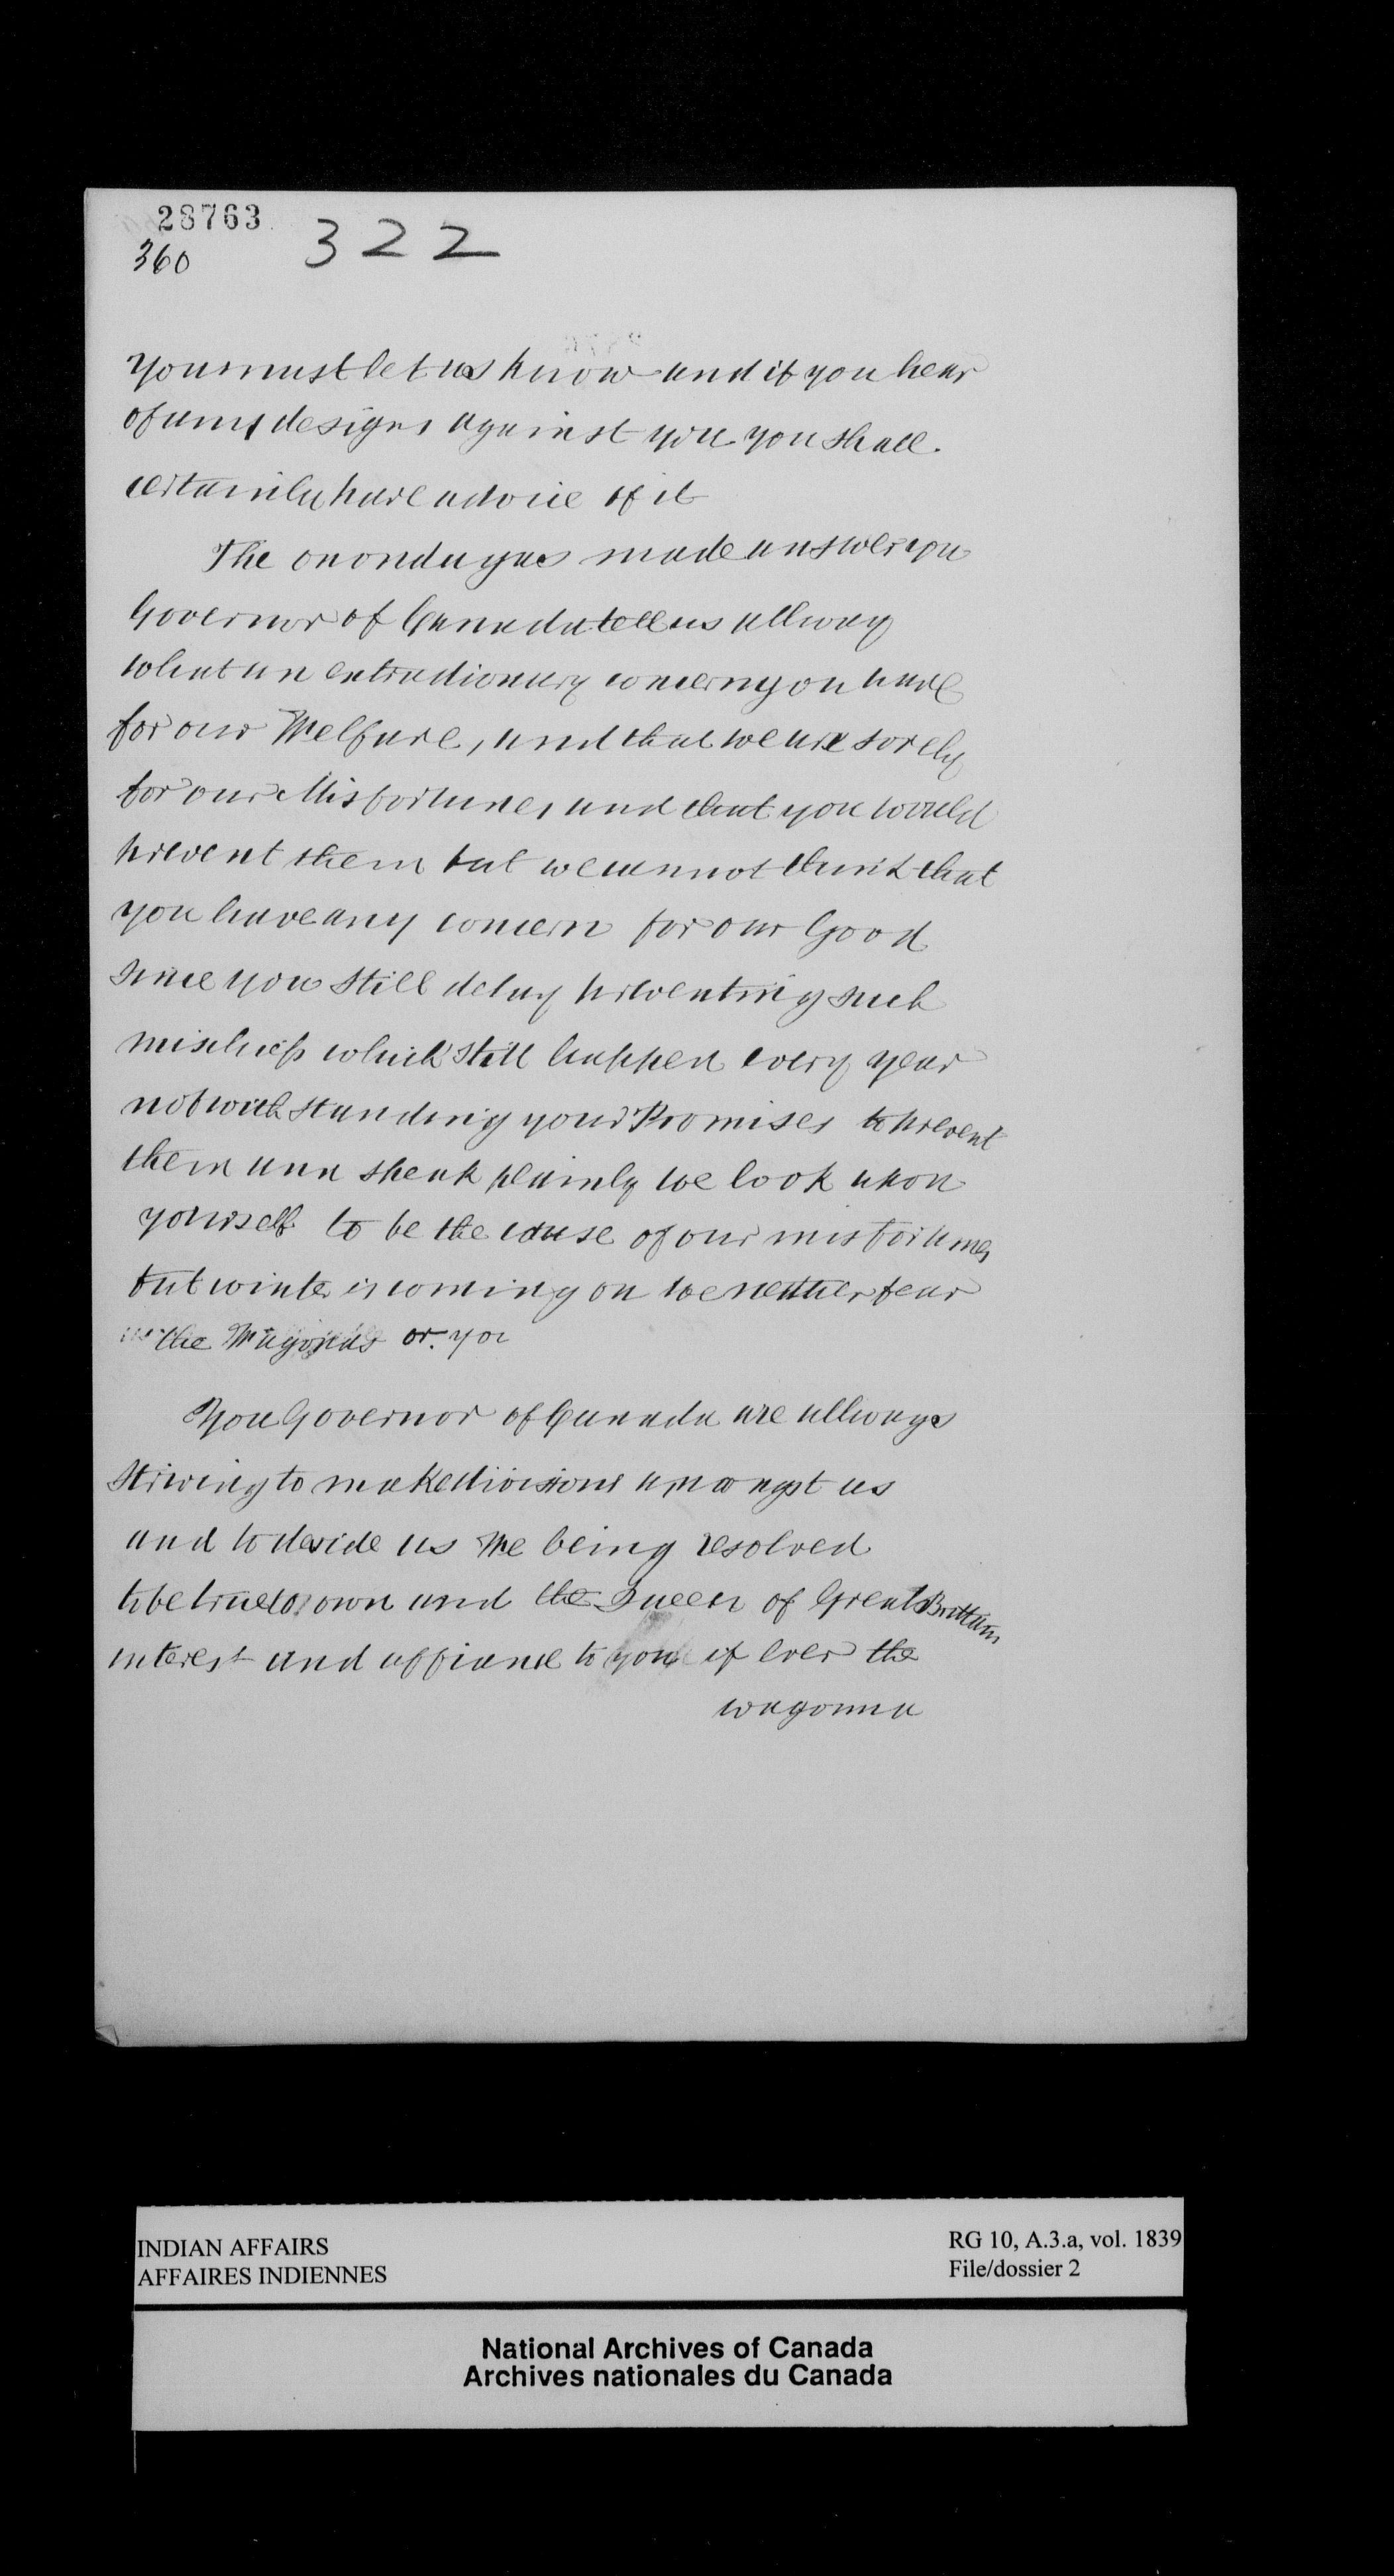 28763
360 322
you must let us know and if you hear
of any designs against you you shall
certainly have advice of it
The onondagas made answer you
Governor of Canada tell us allway
what an extradionary concern you have
for our Welfare, and that we are sorely
for our Misfortunes and that you would
prevent them but we cannot think that
you have any concern for our Good
since you still delay preventing such
mischiefs which still happen every year
notwithstanding your Promises to prevent
them ann speak plainly we look upon
yourself to be the cause of our misfortunes
but winter is coming on we neither fear
the or you
You Governor of Canada are allways
striving to make divisions amongst us
and to deride us We being resolved
to be true to own and the Queen of Great Brittain
interest and affiance to you if ever the
wagonna
INDIAN AFFAIRS
AFFAIRES INDIENNES
RG 10, A.3.a, vol. 1839
File/dossier 2
National Archives of Canada
Archives nationales du Canada